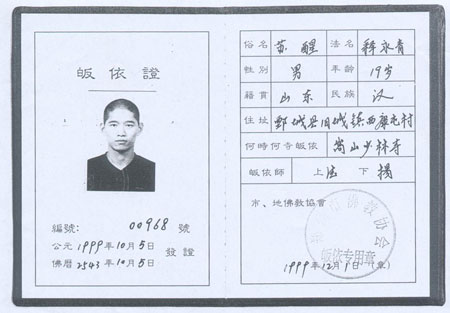 皈依證
編號: 00968 號
公元 1999年10月5日
佛曆 2543年10月5日
發證
俗名 苏醒 法名 释永青
性別 男 年齡 19岁
籍貫 山东 民族 汉
住址 鄄城县旧城镇西 村
何時何寺皈依 嵩山少林寺
皈依師 上 法 下 揚
市、地佛敎協會
佛教协会
皈依专用章
1999年12月1日(章)